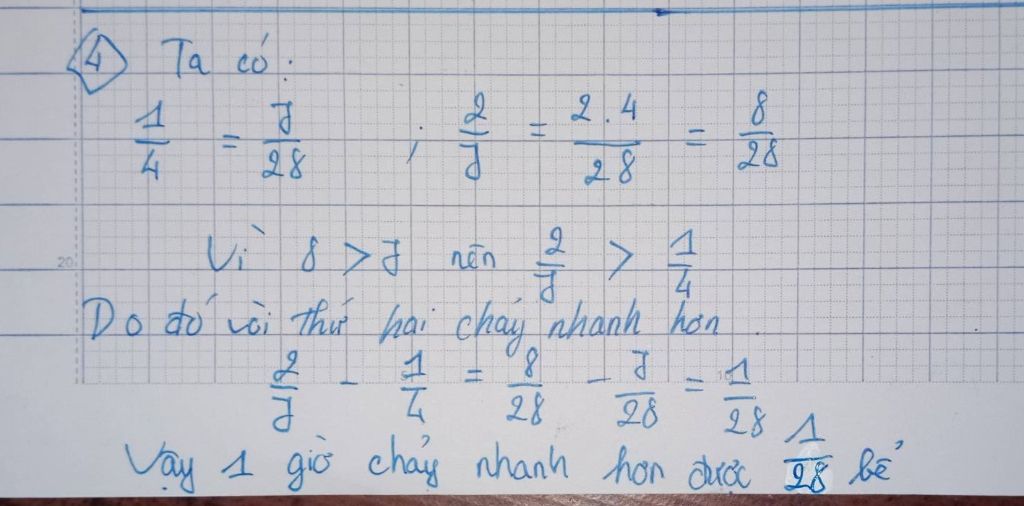 4 Ta có:
1/4 = 7/28 ; 2/7 = 2.4/28 = 8/28
Vì 8 > 7 nên 2/7 > 1/4
Do đó vòi thứ hai chảy nhanh hơn.
2/7 - 1/4 = 8/28 - 7/28 = 1/28
Vậy 1 giờ chảy nhanh hơn được 1/28 bể